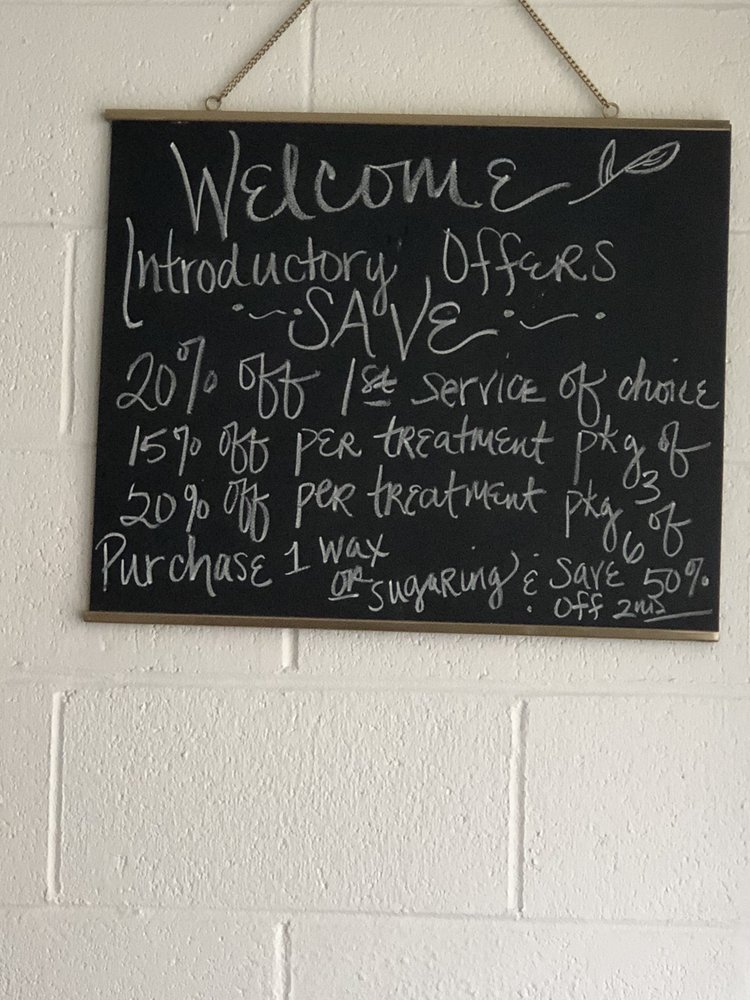 Welcome
Introductory Offers
SAVE
20% off 1st service of choice
15% off per treatment pkg of 3
20% off per treatment pkg of 6
Purchase 1 wax or sugaring & save 50% off 2nd